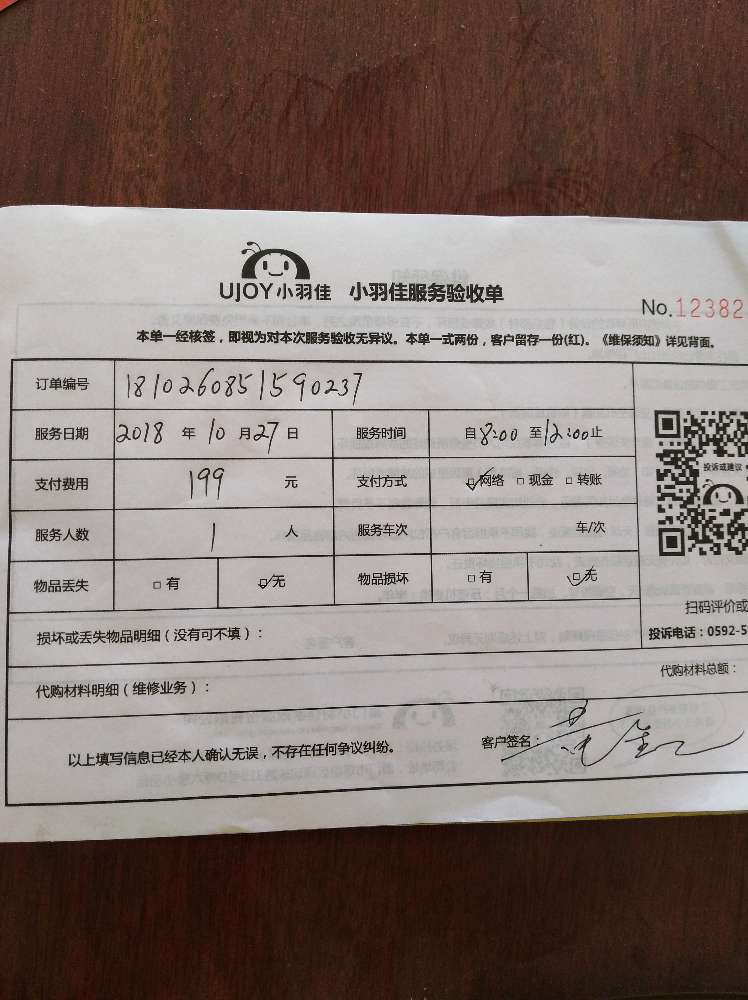 UJOY小羽佳 小羽佳服务验收单
No.12382
本单一经核签，即视为对本次服务验收无异议。本单一式两份，客户留存一份(红)。《维保须知》详见背面。
订单编号 1810260851590237
服务日期 2018 年 10 月 27 日 服务时间 自 8:00 至 12:00 止
支付费用 199 元 支付方式 网络 现金 转账
投诉或建议
服务人数 1 人 服务车次 车/次
物品丢失 有 无 物品损坏 有 无
扫码评价或
损坏或丢失物品明细（没有可不填）：
投诉电话：0592-5
代购材料明细（维修业务）：
代购材料总额：
以上填写信息已经本人确认无误，不存在任何争议纠纷。 客户签名：